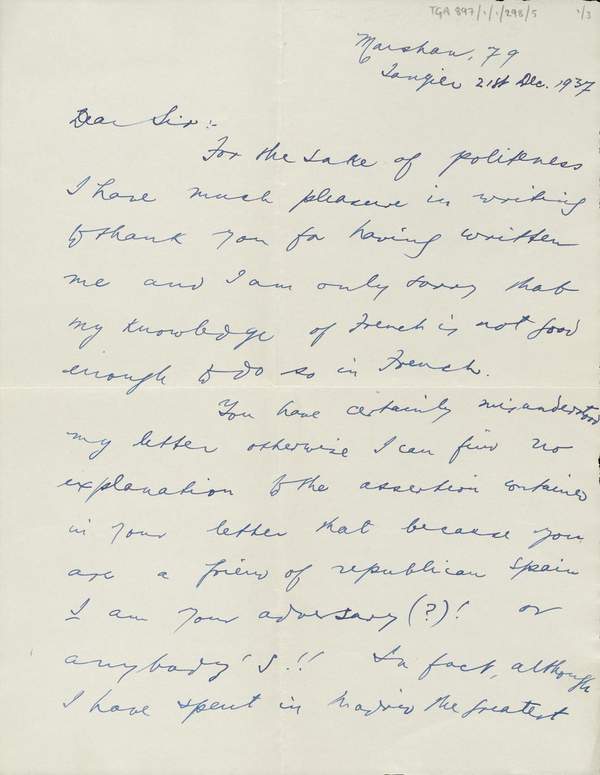 TGA 897/1/1/298/5
1/3
Marshan, 79
Tangier 21st Dec. 1937
Dear Sir:-
For the sake of politeness
I have much pleasure in writing
to thank you for having written
me and I am only sorry that
my knowledge of French is not good
enough to do so in French.
You have certainly misunderstood
my letter otherwise I can find no
explanation to the assertion contained
in your letter that because you
are a friend of republican Spain
I am your adversary (?)! or
anybody's!! In fact, although
I have spent in Madrid the greatest